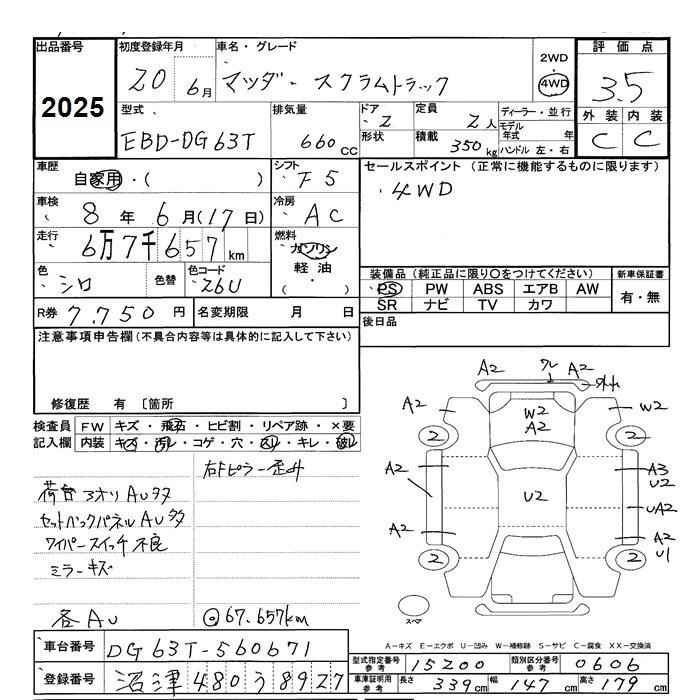 出品番号 2025
初度登録年月 20年 6月
車名・グレード マツダ スクラムトラック
2WD・
4WD
評価点 3.5
外装 C 内装 C
型式 EBD-DG63T
排気量 660 CC
ドア 2
形状
定員 2人
積載 350kg
ディーラー・並行
モデル年式 年
ハンドル 左・右
車歴 自家用・( )
シフト F5
セールスポイント (正常に機能するものに限ります)
・4WD
車検 8年 6月(17日)
冷房 AC
走行 6万7千657km
燃料 ガソリン
軽油・
( )
色 シロ 色替
色コード Z6U
装備品 (純正品に限り○をつけてください)
新車保証書
有・無
PS PW ABS エアB AW
SR ナビ TV カワ
R券 7,750円
名変期限 月 日
後日品
注意事項申告欄(不具合内容等は具体的に記入して下さい)
修復歴 有 〔箇所 〕
検査員記入欄
FW キズ・飛石・ヒビ割・リペア跡・×要
内装 キズ・汚レ・コゲ・穴・スレ・キレ・破レ
右Fピラー歪み
荷台 3オリ AU多
セットバックパネル AU多
ワイパースイッチ不良
ミラーキズ
各AU
67.657km
A2 ワレ A2
外れ
A2 W2 A2 W2
2 2
A2 U2 A3 U2
UA2
A2 A2 U1
2 2
スペア
A-キズ E-エクボ U-凹み W-補修跡 S-サビ C-腐食 XX-交換済
車台番号 DG63T-560671
登録番号 沼津 480 う 8927
型式指定番号 参考 15200
類別区分番号 参考 0606
車庫証明用 参考 長さ 339cm 幅 147cm 高さ 179cm